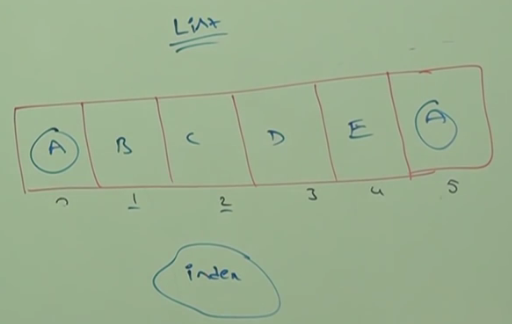 List
A B C D E A
0 1 2 3 4 5
index